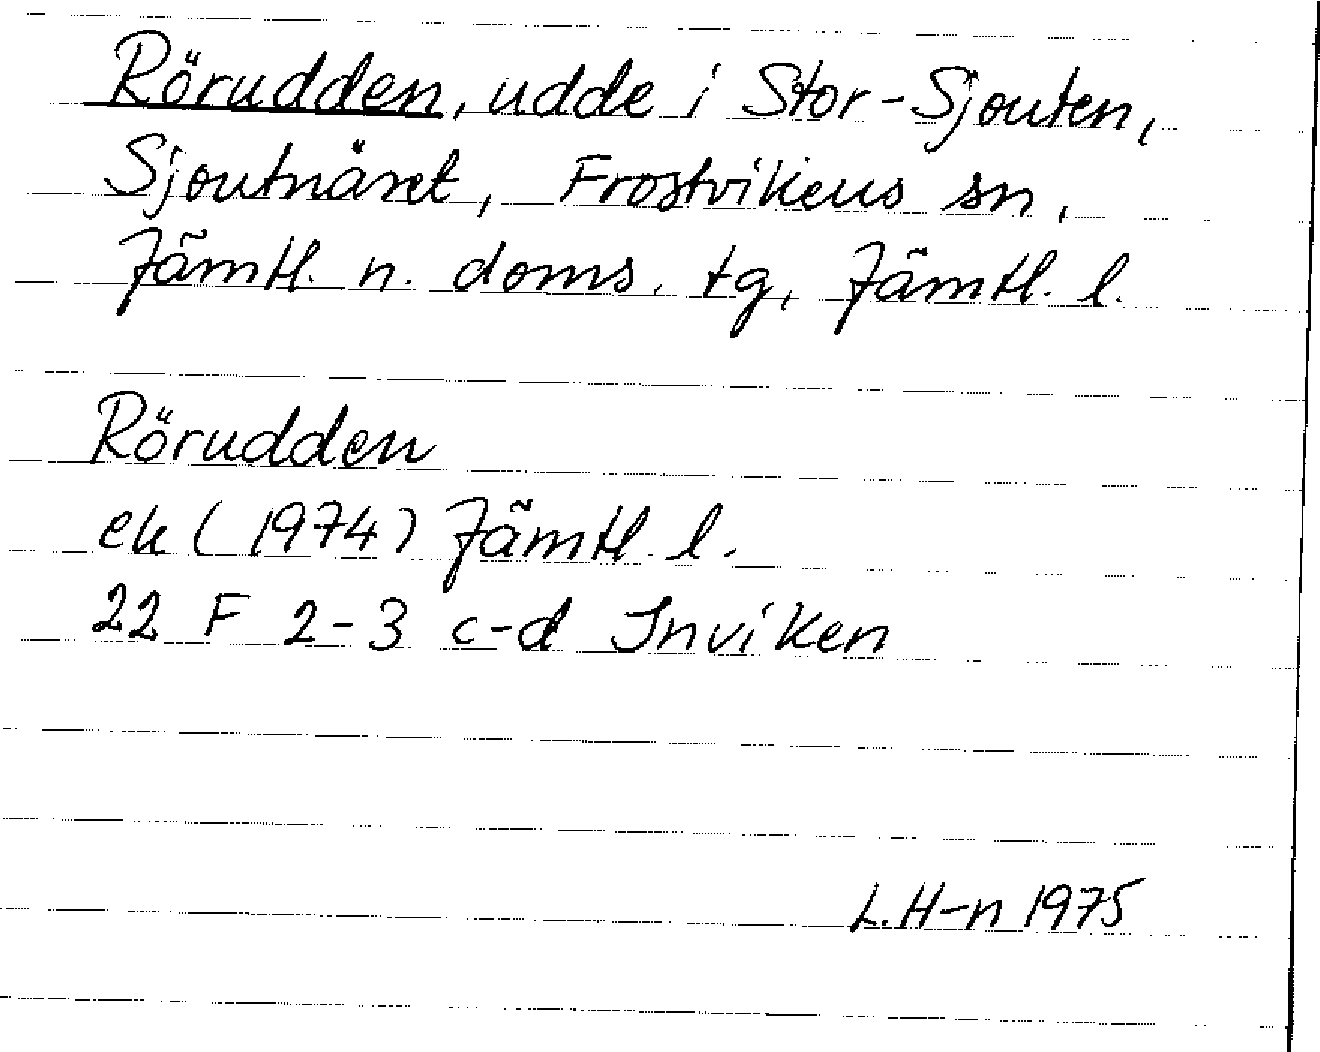 Rörudden, udde i Stor-Sjouten,
Sjoutnäset, Frostvikens sn,
Jämtl. n. doms. tg, Jämtl. l.
Rörudden
ek (1974) Jämtl. l.
22 F 2-3 c-d Inviken
L. H-n 1975